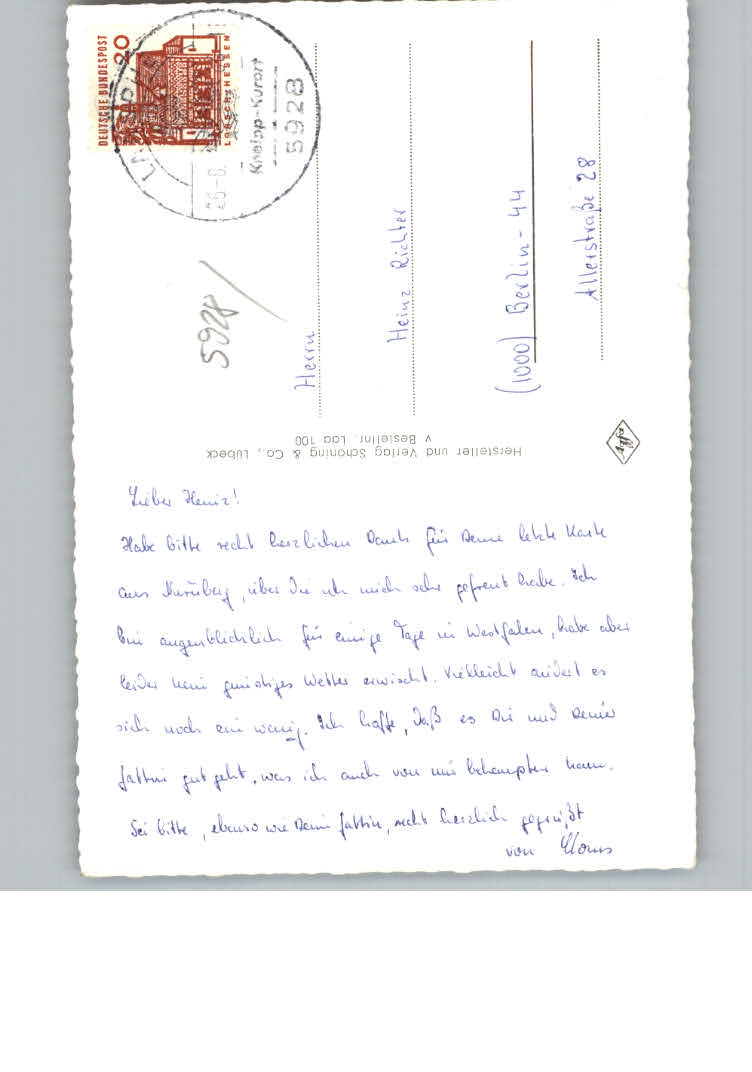 Lieber Heinz!
Habe bitte recht herzlichen Dank für Deine letzte Karte
aus Nürnberg, über die ich mich sehr gefreut habe. Ich
bin augenblicklich für einige Tage in Westfalen, habe aber
leider kein günstiges Wetter erwischt. Vielleicht ändert es
sich noch ein wenig. Ich hoffe, daß es Dir und Deiner
Gattin gut geht, was ich auch von mir behaupten kann.
Sei bitte, ebenso wie Deine Gattin, recht herzlich gegrüßt
von
Hersteller und Verlag Schöning & Co., Lübeck
v Bestellnr. Laa 100
Agfa
DEUTSCHE BUNDESPOST
20
LORSCH/HESSEN
Kneipp-Kurort
5928
5928
Herrn
Heinz Richter
(1000) Berlin-44
Allerstraße 28